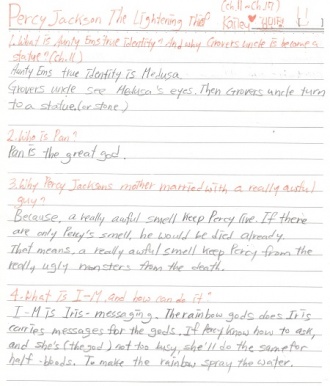 Percy Jackson The Lightening thief (ch.11~ch.17)
1. What is Aunty Ems true identity? And why Grovers uncle is become a
statue? (ch.11)
Aunty Ems true identity is Medusa.
Grovers uncle see Medusa's eyes. Then Grovers uncle turn
to a statue. (or stone)
2. Who is Pan?
Pan is the great god.
3. Why Percy Jacksons mother married with a really awful
guy?
Because, a really awful smell keep Percy live. If there
are only Percy's smell, he would be died already.
That means, a really awful smell keep Percy from the
really ugly monsters from the death.
4. What is I-M. and how can do it?
I-M is Iris-messaging. The rainbow gods does Iris
carries messages for the gods. If Percy know how to ask,
and she's (the god) not too busy, she'll do the same for
half-bloods. To make the rainbow spray the water.